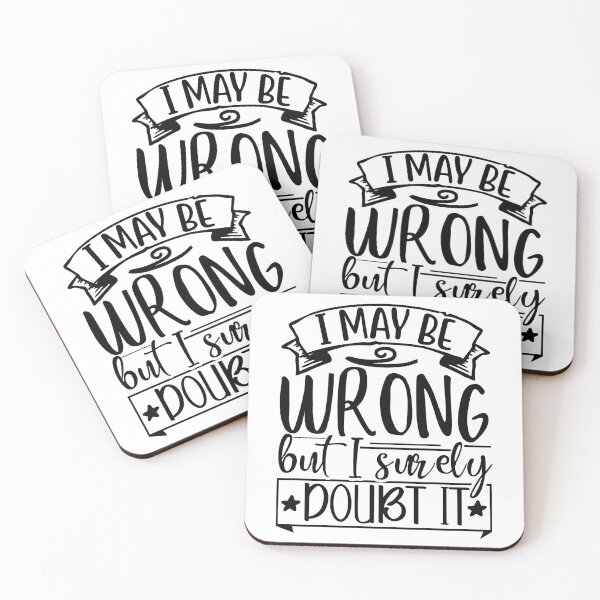 I MAY BE
WRONG
I MAY BE
WRONG
but I surely
I MAY BE
WRONG
DOUBT IT
I MAY BE
WRONG
but I surely
DOUBT IT